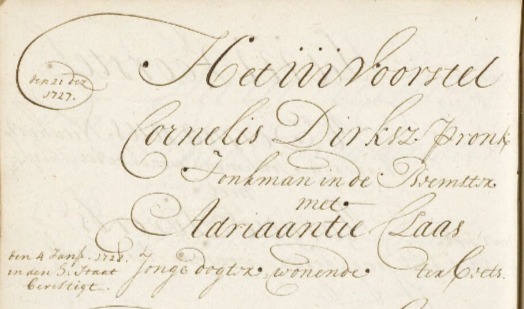 Het iii Voorstel
den 21 dez
1727.
Cornelis Dirksz Pronk
Jonkman in de Beemster
met
Adriaantie Claas
Jonge dogter wonende ter Coets.
den 4 Janf. 1728.
in den 5. Staat
bevestigt.